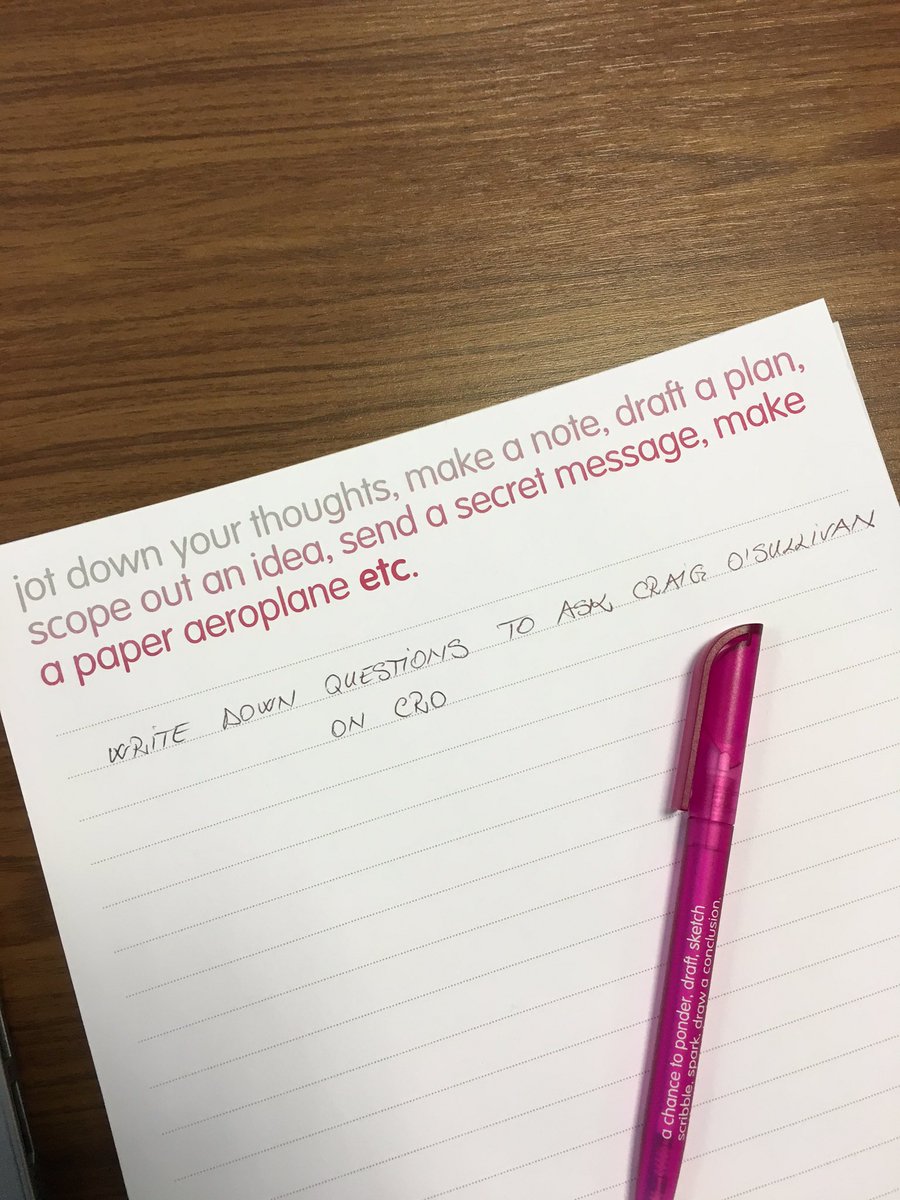 jot down your thoughts, make a note, draft a plan,
scope out an idea, send a secret message, make
a paper aeroplane etc.
WRITE DOWN QUESTIONS TO ASK CRAIG O'SULLIVAN
ON CRO
a chance to ponder, draft, sketch
scribble, spark, draw a conclusion,